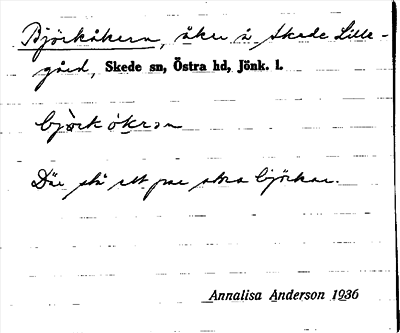 Björkåkern, åker å Skede Lille-
gård, Skede sn, Östra hd, Jönk. l.
bjò̀rkåkrən
Där stå ett par stora björkar.
Annalisa Anderson 1936